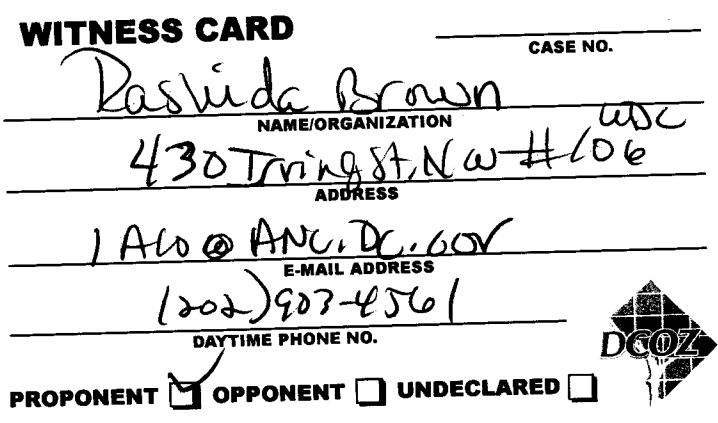 WITNESS CARD
CASE NO.
Rashida Brown
NAME/ORGANIZATION
430 Irving St, NW #106 WDC
ADDRESS
1A10@ANC.DC.GOV
E-MAIL ADDRESS
(202) 903-4561
DAYTIME PHONE NO.
DCOZ
PROPONENT OPPONENT UNDECLARED